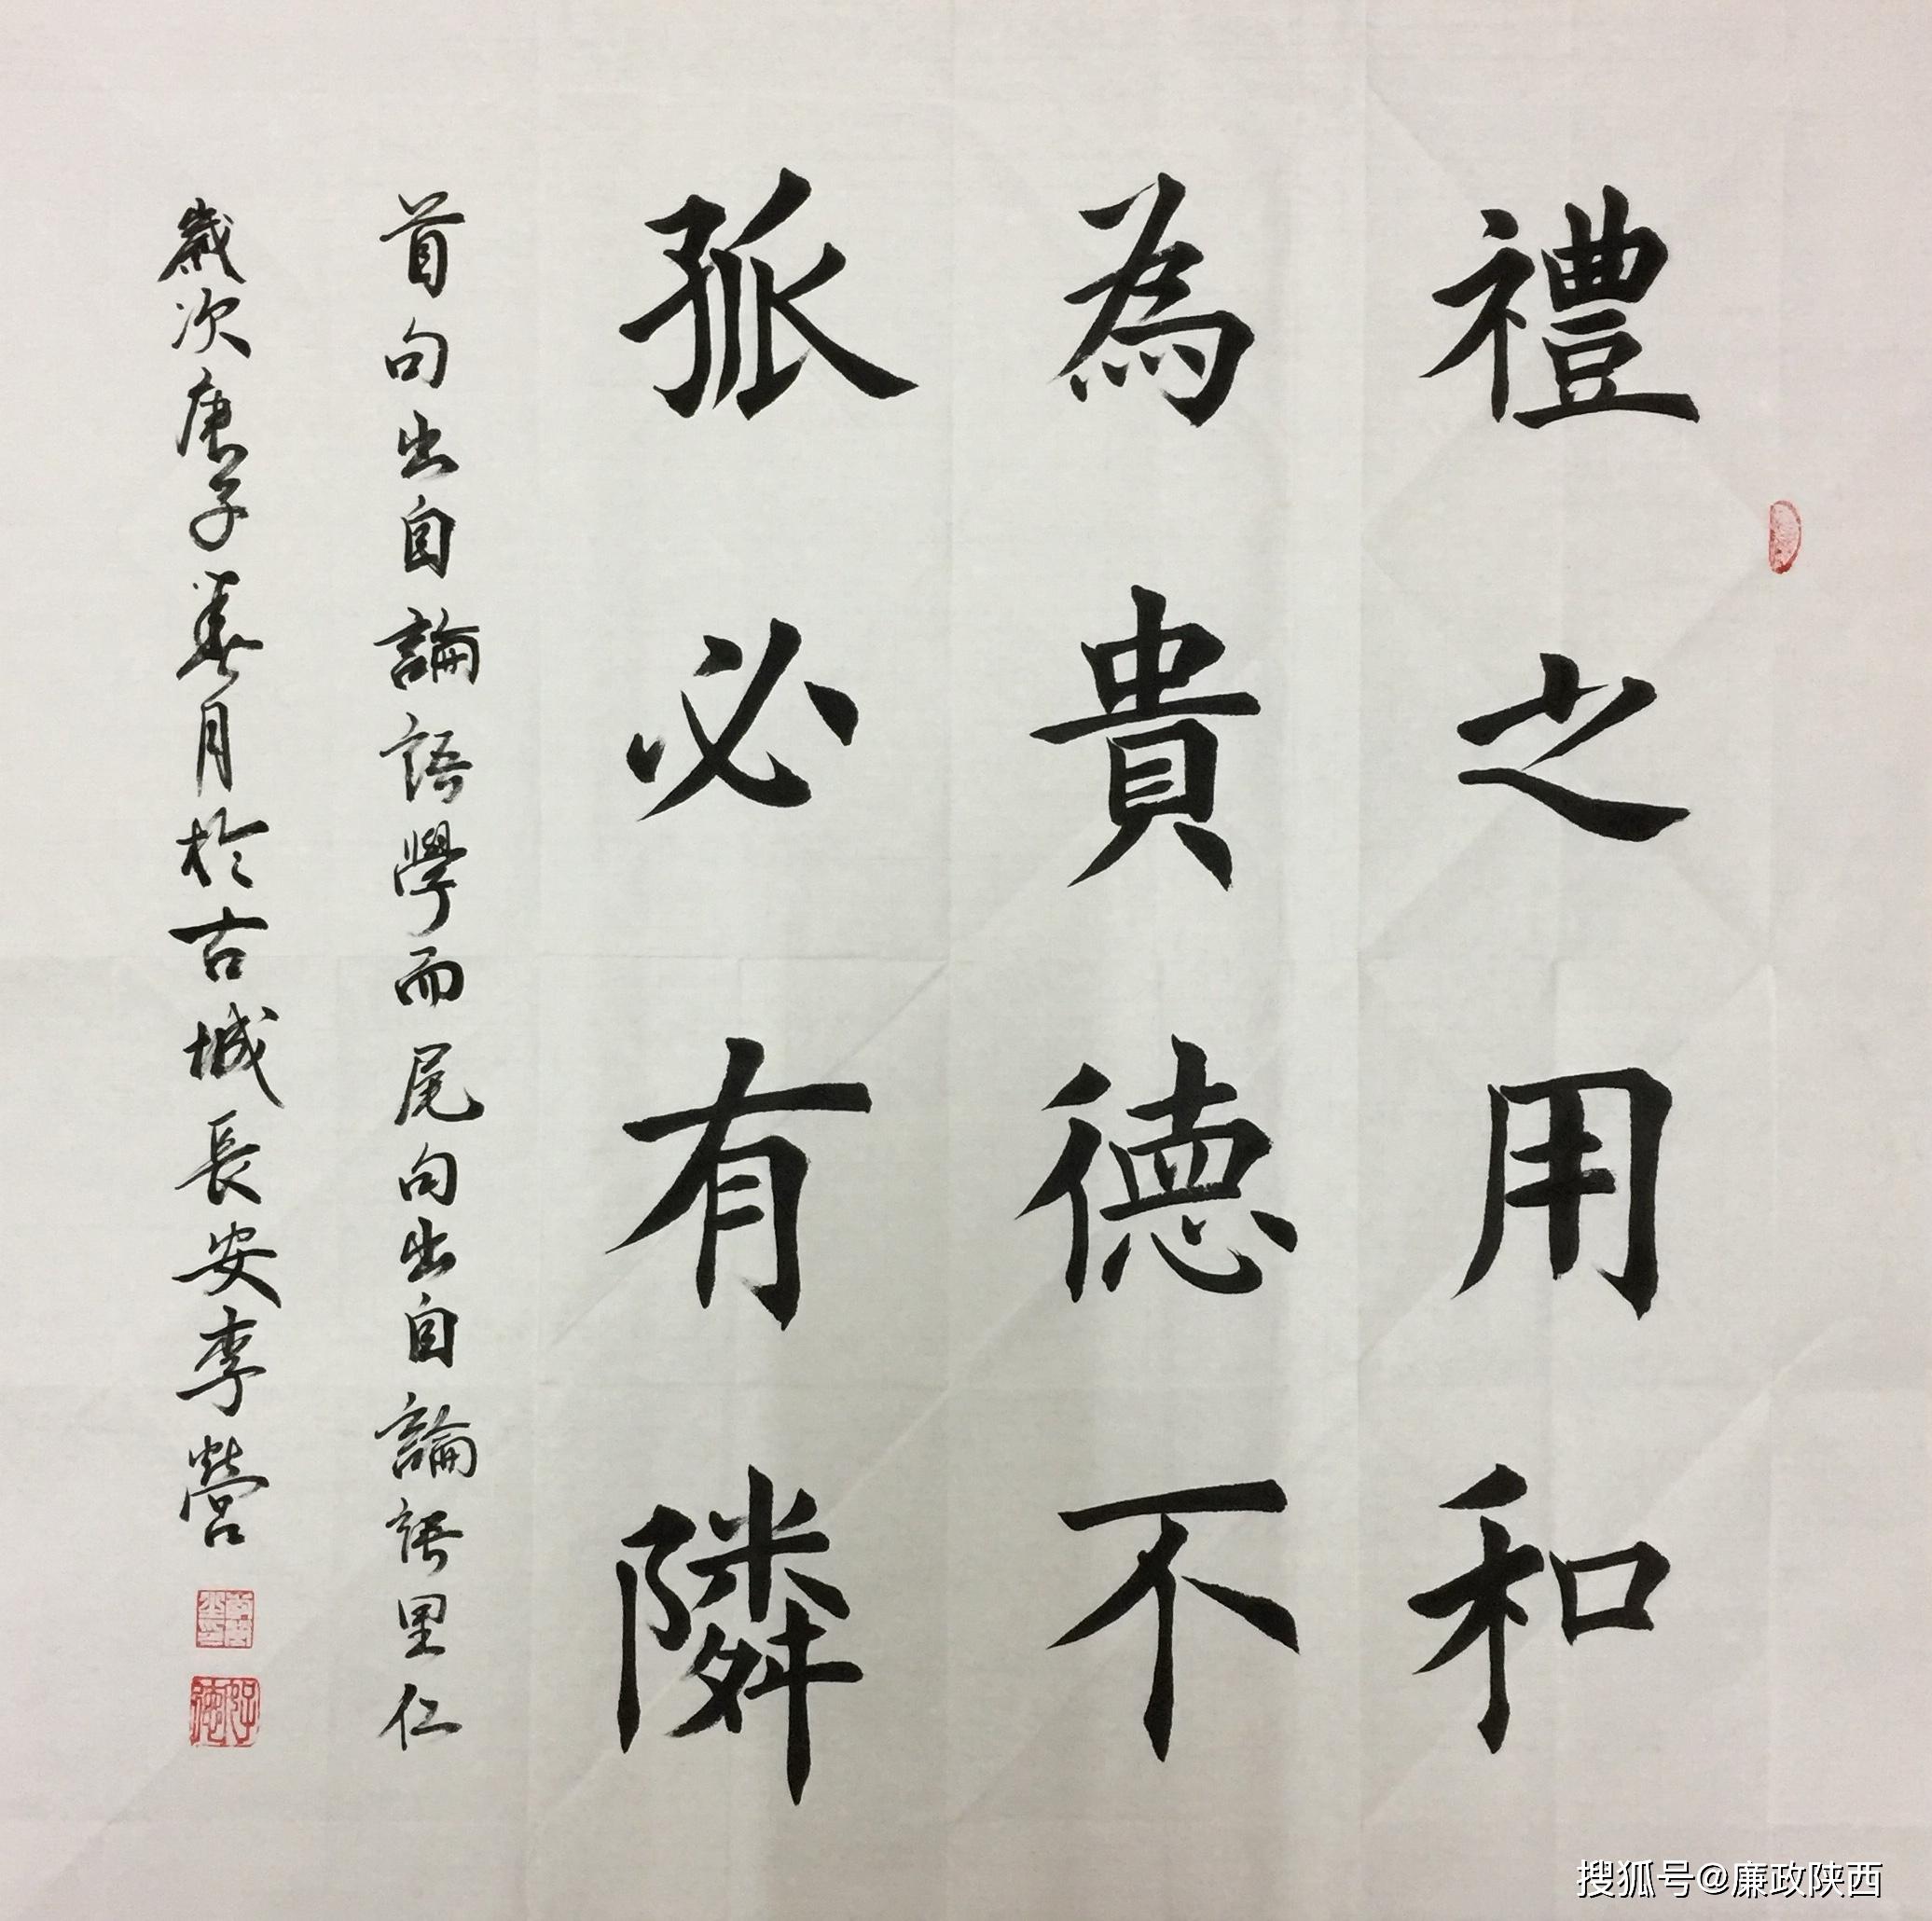 禮之用和
為貴德不
孤必有隣
首句出自論語學而尾句出自論語里仁
歲次庚子春月於古城長安李營
搜狐号@廉政陕西